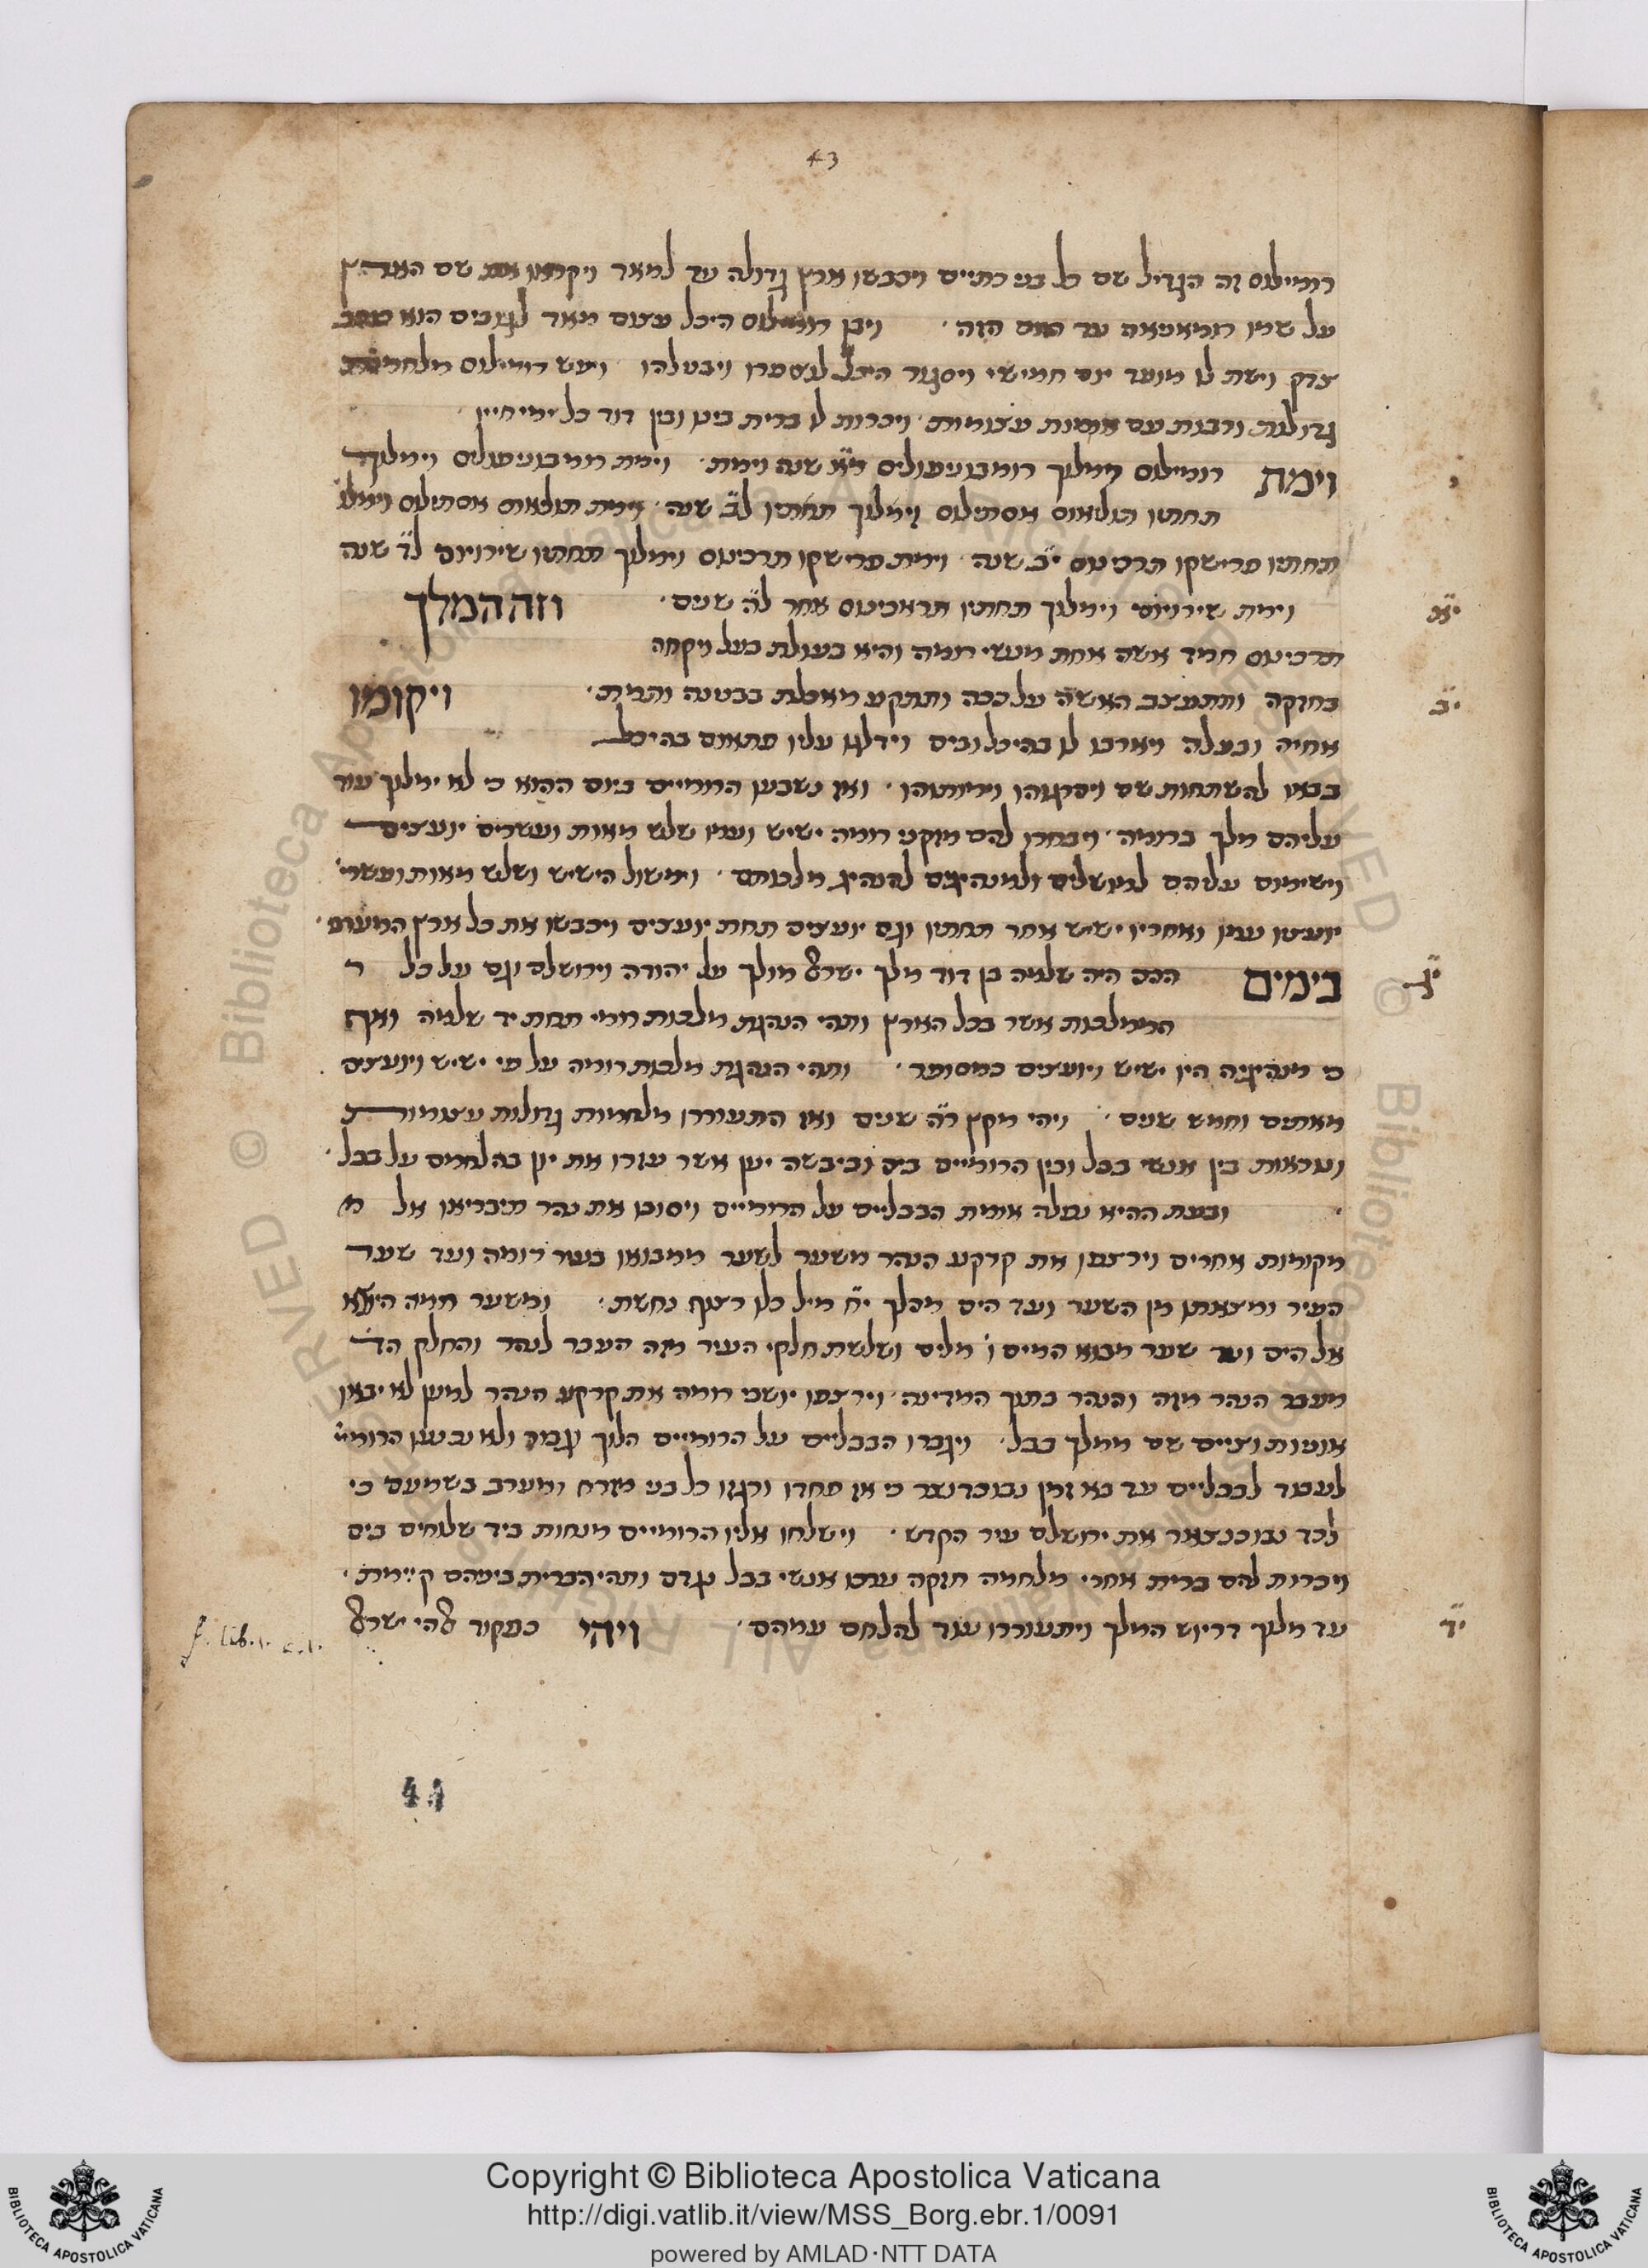 43
רומילוס זה הגדיל שם כל בני כתיים ויכבשו ארץ גדולה עד למאד ויקראו את שם הארץ
על שמו רומאניאה עד היום הזה · ויבן רומילוס היכל עצום מאד לגוביס הוא כוכב
צדק וישת לו מועד יום חמישי ויסגור היכל לוספרו ויבטלהו ויעש רומילוס מלחמות
גדולות ורבות עם אומות עצומות · ויכרות לו ברית בינו ובין דוד כל ימי חייו ·
י
וימת רומילוס וימלוך רומבוניפוליס מ״א שנה וימת · וימת רומבוניפוליס וימלוך
תחתיו תוליאוס אסתילוס וימלוך תחתיו ל״ב שנה · וימת תוליאוס אסתילוס וימלו׳
תחתיו פרישקו תרכינוס י״ב שנה · וימת פרישקו תרכינוס וימלוך תחתיו שירויוס ל״ד שנה
וימת שירויוס וימלוך תחתיו תראכינוס אחר ל״ה שנים · וזה המלך
י״א
תרכינוס חמד אשה אחת מנשי רומה והיא בעולת בעל ויקחה
בחזקה ותתעצב האשה על ככה ותתקע מאכלת בבטנה ותמית · ויקומו
י״ב
אחיה ובעלה ויארבו לו בהיכל וביס וידלגו עליו פתאום בהיכל
בבאו להשתחות שם וידקרוהו וימיתוהו · ואז נשבעו הרומיים ביום ההוא כי לא ימלוך עוד
עליהם מלך ברומה · ויבחרו להם מזקני רומה ישיש ועמו שלש מאות ועשרים יועצים
וישימום עליהם למושלים ולמנהיגים להנהיג מלכותם · וימשול הישיש ושלש מאות ועשרי׳
יועציו עמו ואחריו ישיש אחר תחתיו וגם יועצים תחת יועצים ויכבשו את כל ארץ המערב ·
בימים ההם היה שלמה בן דוד מלך ישראל מולך על יהודה וירושלם וגם על כל
י״ג
הממלכות אשר בכל הארץ ותהי הנהגת מלכות רומי תחת יד שלמה ואף
כי מנהיגיה היו ישיש ויועצים כמסופר · ותהי הנהגת מלכות רומה על פי ישיש ויועצים
מאתים וחמש שנים · ויהי מקץ ר״ה שנים ואז התעוררו מלחמות גדולות עצומות
ונוראות בין אנשי בבל ובין הרומיים בים וביבשה יען אשר עזרו את יון בהלחמם על בבל ·
ובעת ההיא עלה אומת הבבליים על הרומיים ויסובו את נהר תיבריאו אל
מקומות אחרים וירצפו את קרקע הנהר משער לשער ממבואו בעיר רומה ועד שער
העיר ומיצאתו מן השער ועד הים מהלך י״ח מיל כלו רצוף נחשת · ומשער רומה היוצא
אל הים ועד שער מבוא המים ו׳ מלים ושלשת חלקי העיר מזה העבר לנהר והחלק הד׳
מעבר הנהר מזה והנהר בתוך המדינה · וירצפו יושבי רומה את קרקע הנהר למען לא יבאו
אוניות וציים שם ממלך בבל · ויגברו הבבליים על הרומיים הלוך וגבור ולא נכנעו הרומיי׳
לעבוד לבבליים עד בא זמן נבוכדנצר כי אז פחדו ורגזו כל בני מזרח ומערב בשמעם כי
לכד נבוכנצאר את ירושלם עיר הקדש · וישלחו אליו הרומיים מנחות ביד שלוחים בים
ויכרות להם ברית אחרי מלחמה חזקה ערכו אנשי בבל נגדם ותהי הברית ביניהם קיימת ·
עד מלוך דריוש המלך ויתעוררו עוד להלחם עמהם · ויהי כפקוד אלהי ישראל
י״ד
f. lib. 1. c. 1.
44
Copyright © Biblioteca Apostolica Vaticana
http://digi.vatlib.it/view/MSS_Borg.ebr.1/0091
powered by AMLAD·NTT DATA
BIBLIOTECA APOSTOLICA VATICANA
BIBLIOTECA APOSTOLICA VATICANA